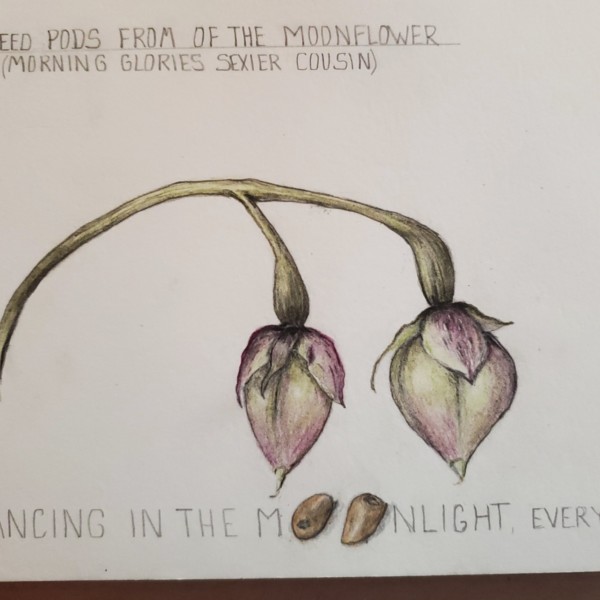 EED PODS FROM OF THE MOONFLOWER
(MORNING GLORIES SEXIER COUSIN)
ANCING IN THE MOONLIGHT, EVERY